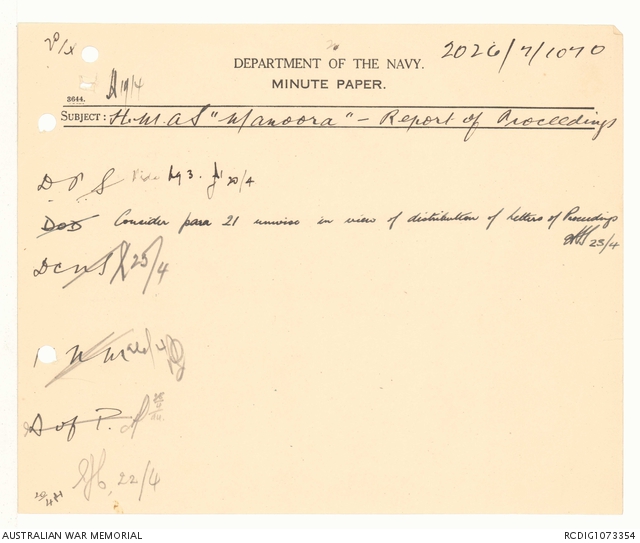 2026/7/1070
DEPARTMENT OF THE NAVY.
MINUTE PAPER.
19/4
3644.
SUBJECT: H.M.A.S "Manoora" - Report of Proceedings
D.P.S 20/4
DOD Consider para 21 unwise in view of distribution of Letters of Proceedings
23/4
DCNS 23/4
D of P.
22/4
AUSTRALIAN WAR MEMORIAL
RCDIG1073354